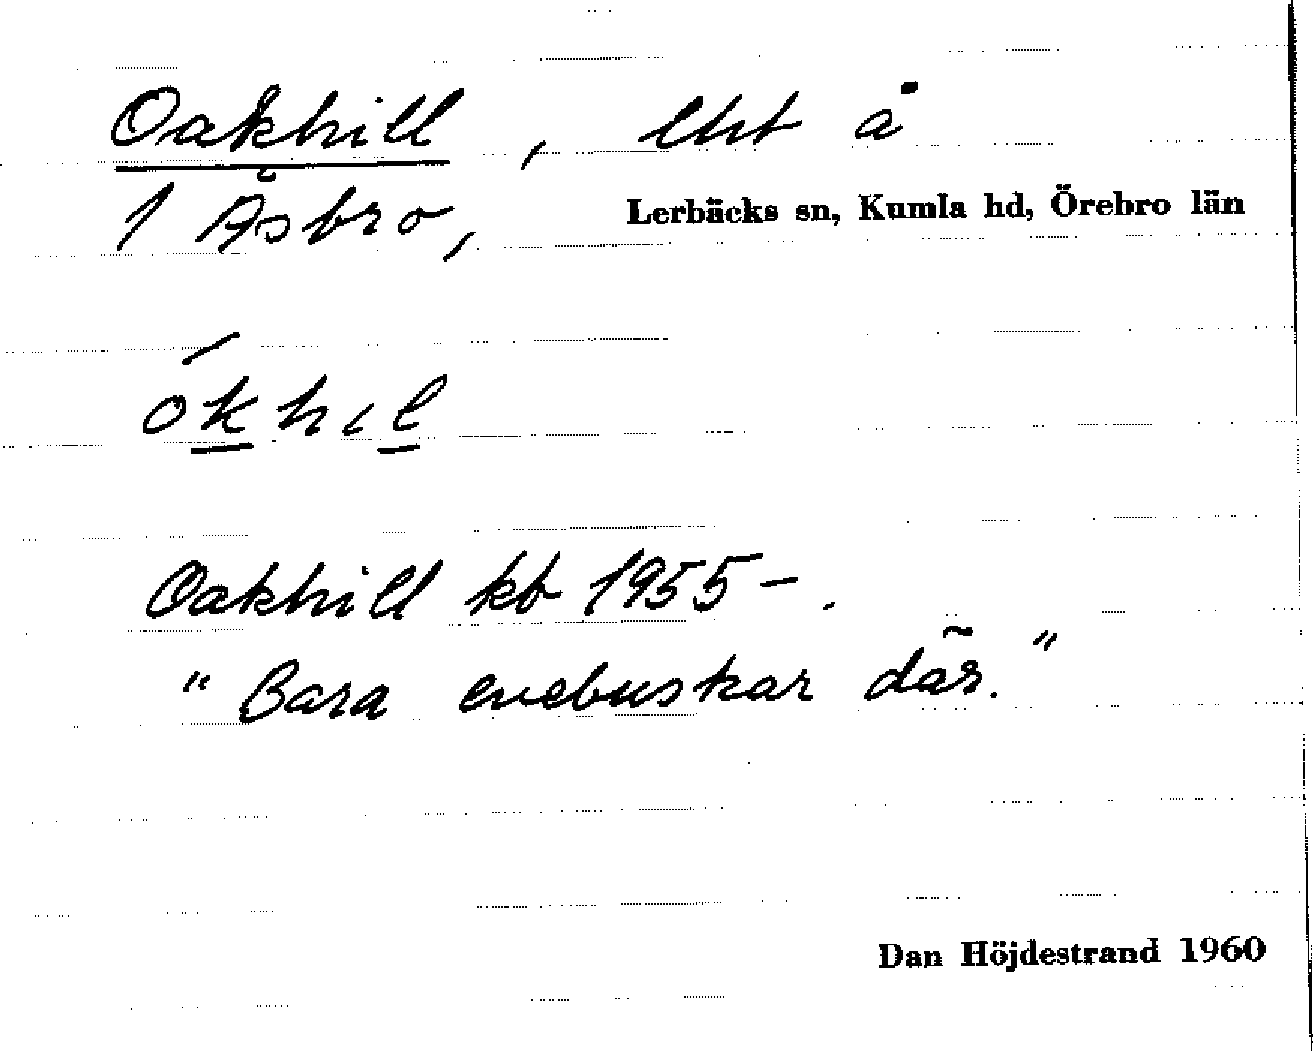 Oakhill, lht å
1 Åsbro, Lerbäcks sn, Kumla hd, Örebro län
ókhıl
Oakhill kb 1955–.
"Bara enebuskar där."
Dan Höjdestrand 1960